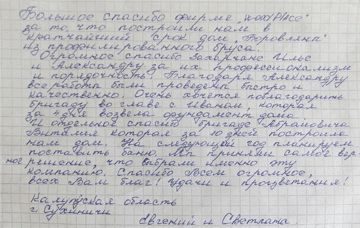 Большое спасибо фирме "WOOD PALACE"
за то, что построили нам в
кратчайший срок дом
из профилированного бруса.
Огромное спасибо Захарьянс Илье
и Александру за их профессионализм
и порядочность! Благодаря Александру
все работы были проведены быстро и
качественно. Очень хочется поблагодарить
бригаду во главе с Иваном, которая
за 4 дня возвела фундамент дома
И отдельное спасибо бригаде Абрамовича
Виталия которая за 10 дней построила
нам дом. На следующий год планируем
поставить баню. Мы приняли самое вер
ное решение, что выбрали именно эту
компанию. Спасибо Всем огромное,
всех Вам благ! Удачи и процветания!
Калужская область
г. Сухиничи
Евгений и Светлана